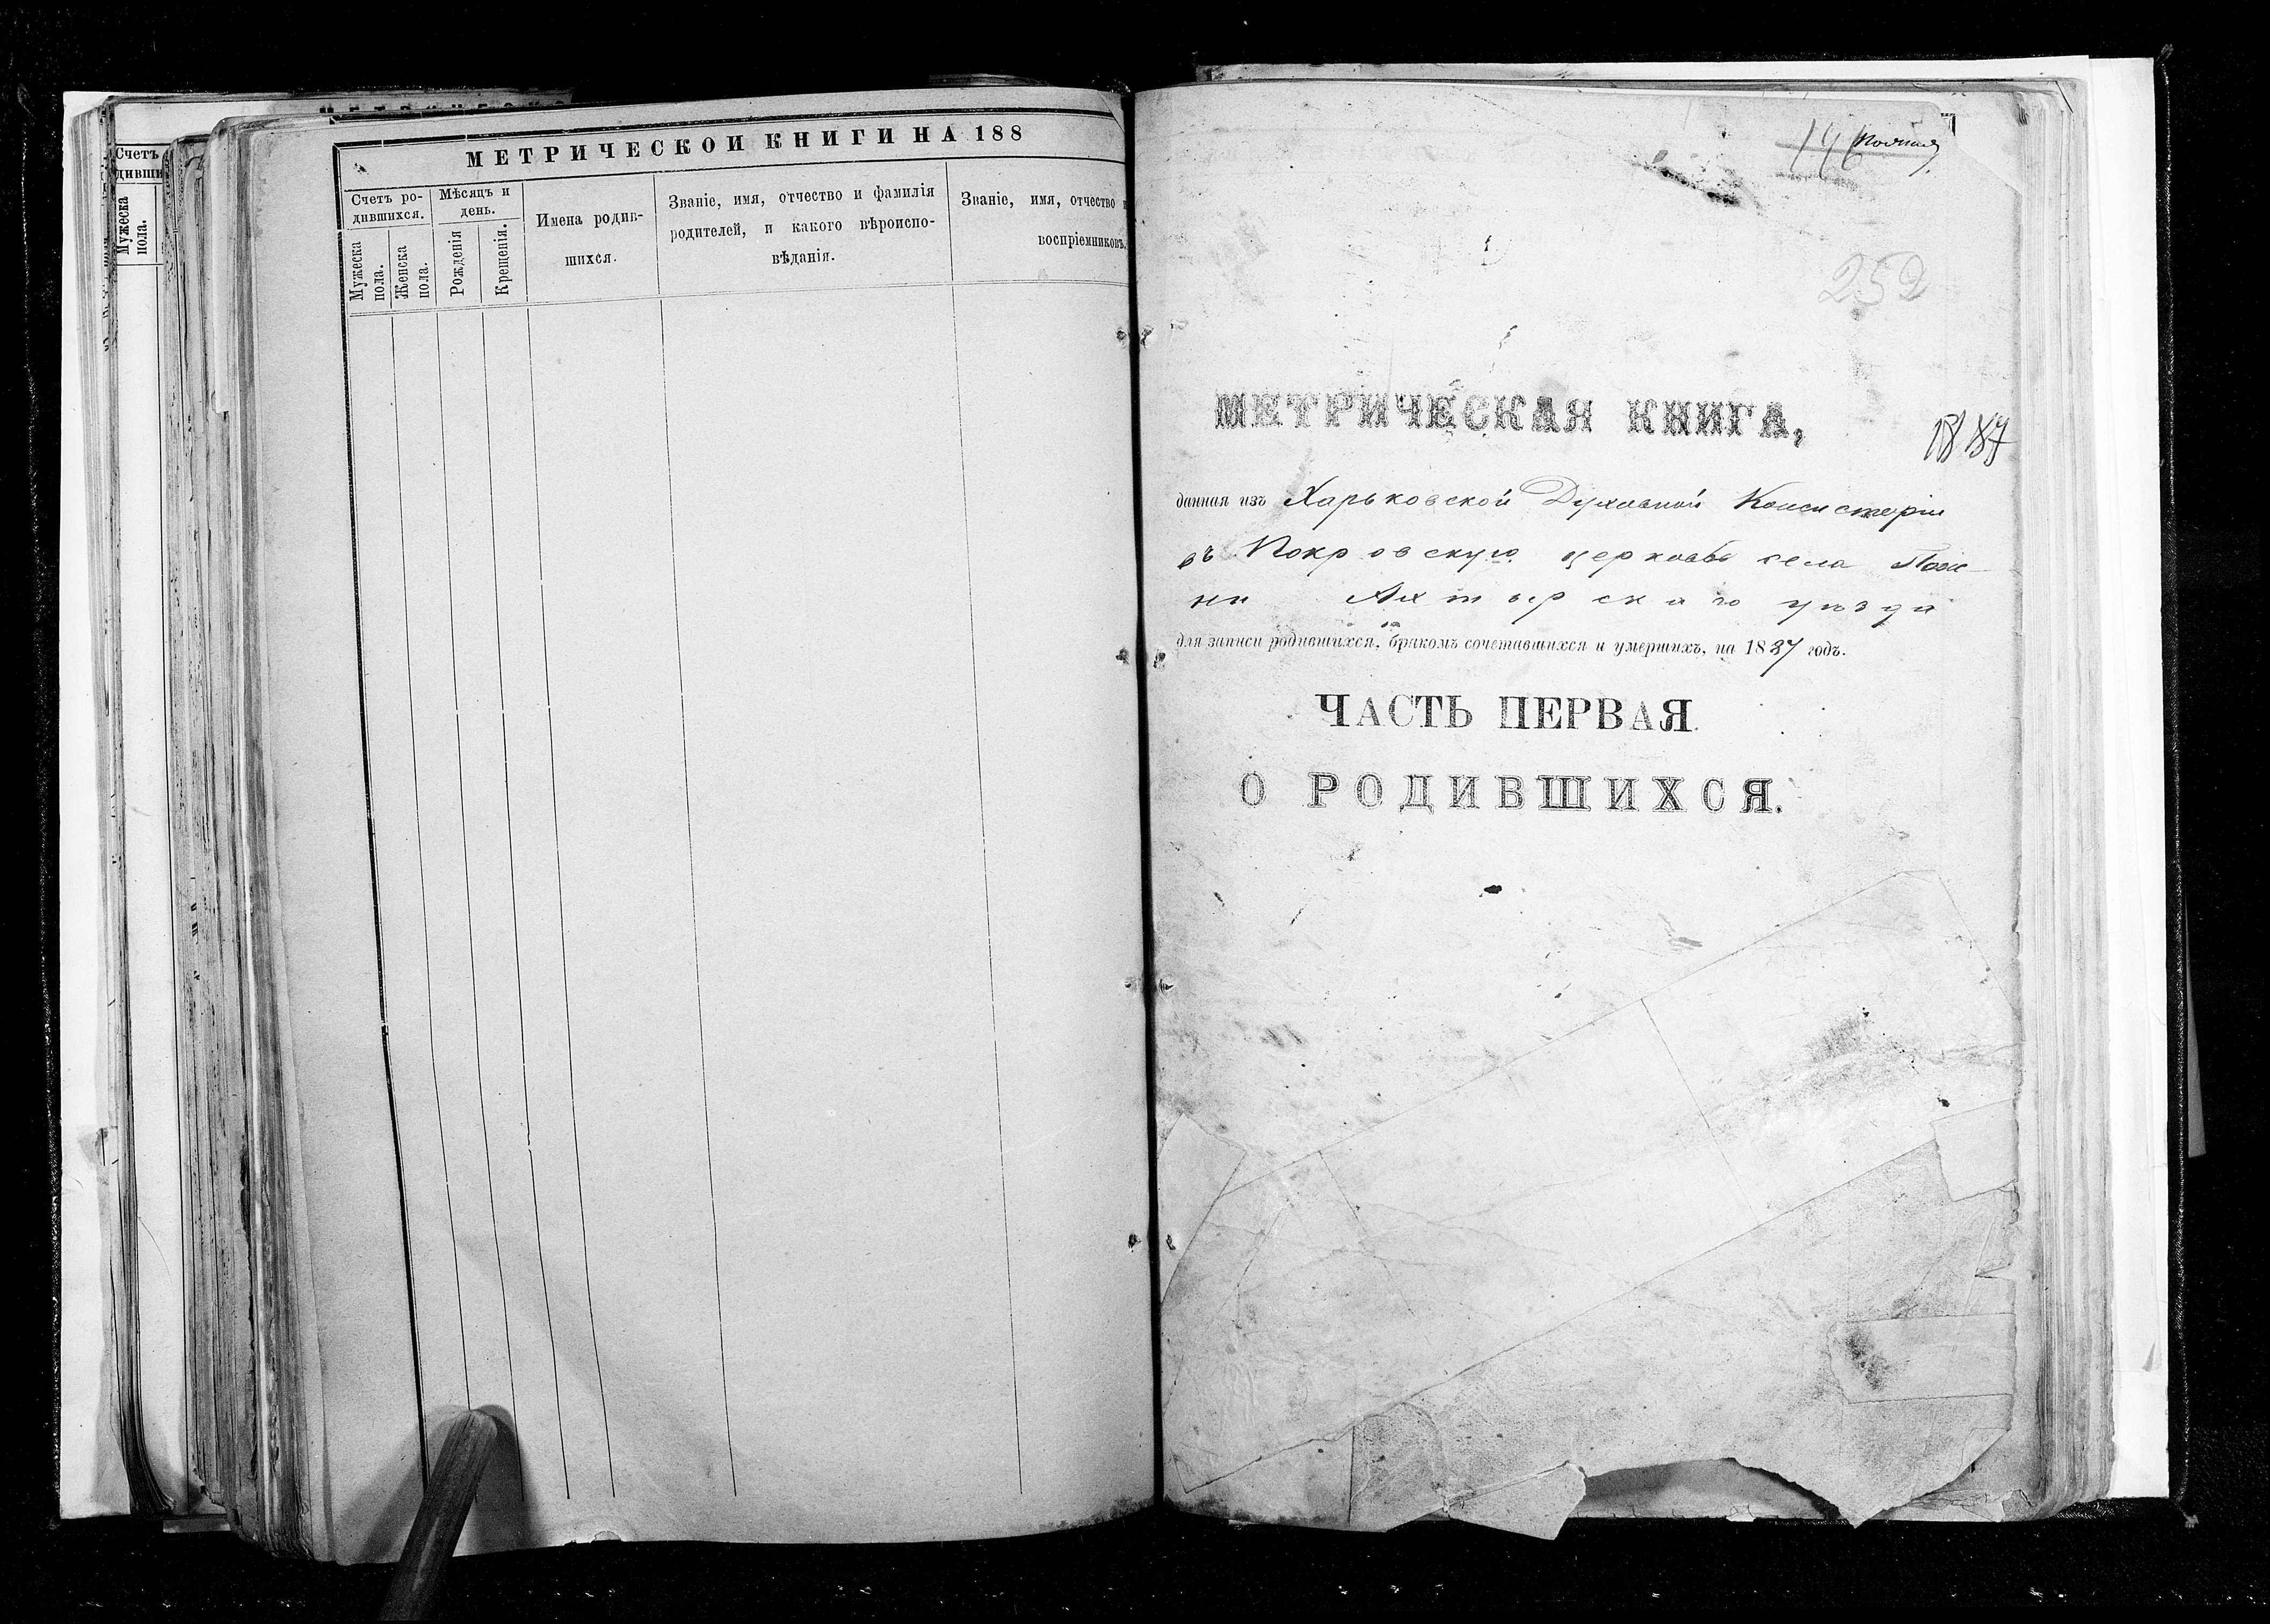 Счетъ
дивши
Мужеска
пола.
МЕТРИЧЕСКОЙ КНИГИ НА 188
Счетъ ро-
дившихся.
Мѣсяцъ и
день.
Мужеска
пола.
Женска
пола.
Рожденія
Крещенія.
Имена родив-
шихся.
Званіе, имя, отчество и фамилія
родителей, и какого вѣроиспо-
вѣданія.
Званіе, имя, отчество и
воспріемниковъ.
196
252
МЕТРИЧЕСКАЯ КНИГА,
1887
данная изъ Харьковской Духовной Консисторіи
въ Покровскую церковь села Пож-
ни Ахтырскаго уѣзда
для записи родившихся, бракомъ сочетавшихся и умершихъ, на 1887 годъ.
ЧАСТЬ ПЕРВАЯ.
О РОДИВШИХСЯ.